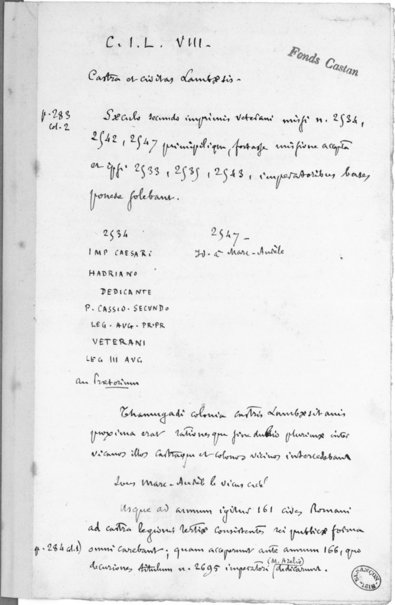 C. I. L. VIII -
Fonds Castan
Castra et civitas Lambæsis -
p. 283
col. 2
Sæculo secundo imprimis veterani missi n. 2534,
2542, 2547 primipilique, fortasse missione accepta
et ipsi 2533, 2535, 2543, imperatoribus bases
ponere solebant.
2534
IMP CAESARI
HADRIANO
DEDICANTE
P. CASSIO. SECUNDO
LEG. AUG. PR. PR
VETERANI
LEG III AUG
au Prætorium
2547 -
Id. à Marc-Aurèle
Thamugadi colonia castris Lambæsitanis
proxima erat rationesque sine dubio plurimæ inter
vicanos illos castraque et colonos vicinos intercedebant
Sous Marc-Aurèle le vicus
Usque ad annum igitur 161 cives Romani
ad castra legionis tertiæ consistentes rei publicæ forma
p. 284
omni carebant, quam acceperunt ante annum 166, quo
decuriones titulum n. 2695 imperatori (M. Aurelio) dedicarunt.